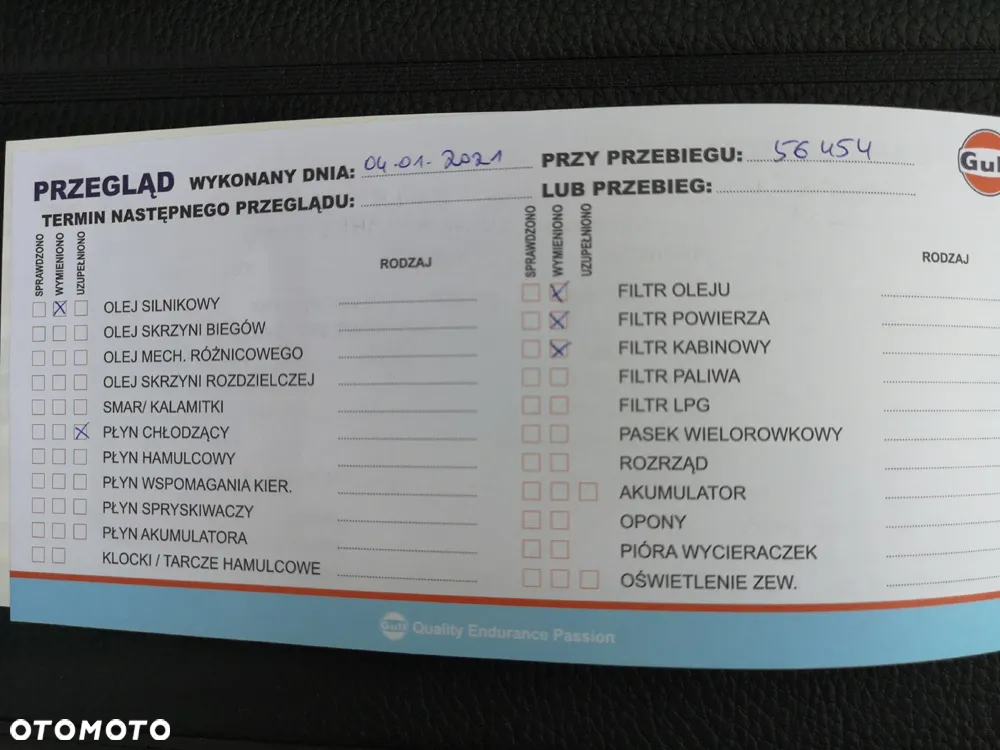 PRZEGLĄD WYKONANY DNIA: 04.01.2021
TERMIN NASTĘPNEGO PRZEGLĄDU:
SPRAWDZONO
WYMIENIONO
UZUPEŁNIONO
RODZAJ
OLEJ SILNIKOWY
OLEJ SKRZYNI BIEGÓW
OLEJ MECH. RÓŻNICOWEGO
OLEJ SKRZYNI ROZDZIELCZEJ
SMAR/ KALAMITKI
PŁYN CHŁODZĄCY
PŁYN HAMULCOWY
PŁYN WSPOMAGANIA KIER.
PŁYN SPRYSKIWACZY
PŁYN AKUMULATORA
KLOCKI / TARCZE HAMULCOWE
PRZY PRZEBIEGU: 56 454
LUB PRZEBIEG:
Gulf
SPRAWDZONO
WYMIENIONO
UZUPEŁNIONO
RODZAJ
FILTR OLEJU
FILTR POWIERZA
FILTR KABINOWY
FILTR PALIWA
FILTR LPG
PASEK WIELOROWKOWY
ROZRZĄD
AKUMULATOR
OPONY
PIÓRA WYCIERACZEK
OŚWIETLENIE ZEW.
Gulf Quality Endurance Passion
OTOMOTO